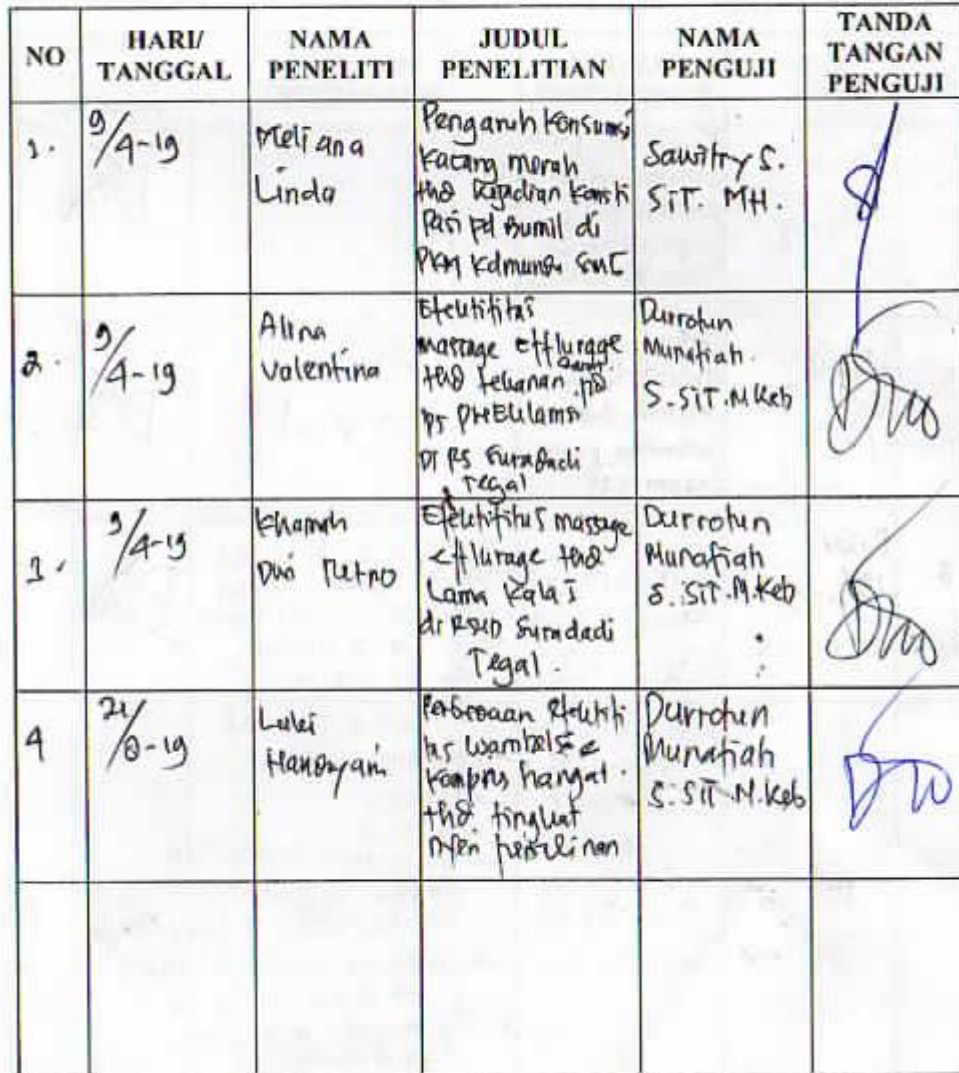 NO
HARI/
TANGGAL
NAMA
PENELITI
JUDUL
PENELITIAN
NAMA
PENGUJI
TANDA
TANGAN
PENGUJI
1.
9/4-19
Meliana
Linda
Pengaruh konsumsi
kacang merah
thd kejadian konsti
pasi pd Bumil di
PKM
Sawitry S.
SiT. MH.
2.
9/4-19
Alina
Valentina
Efektifitas
massage efflurage
thd tekanan darah pd
di RS Suradadi
Tegal
Durrotun
Munafiah.
S.SiT.M.Keb
3.
9/4-19
Dwi Retno
Efektifitas massage
efflurage thd
Lama Kala I
di RSUD Suradadi
Tegal.
Durrotun
Munafiah
S.SiT.M.Keb
4
/8-19
Handayani
hangat.
thd tingkat
nyeri persalinan
Durrotun
Munafiah
S.SiT M.Keb